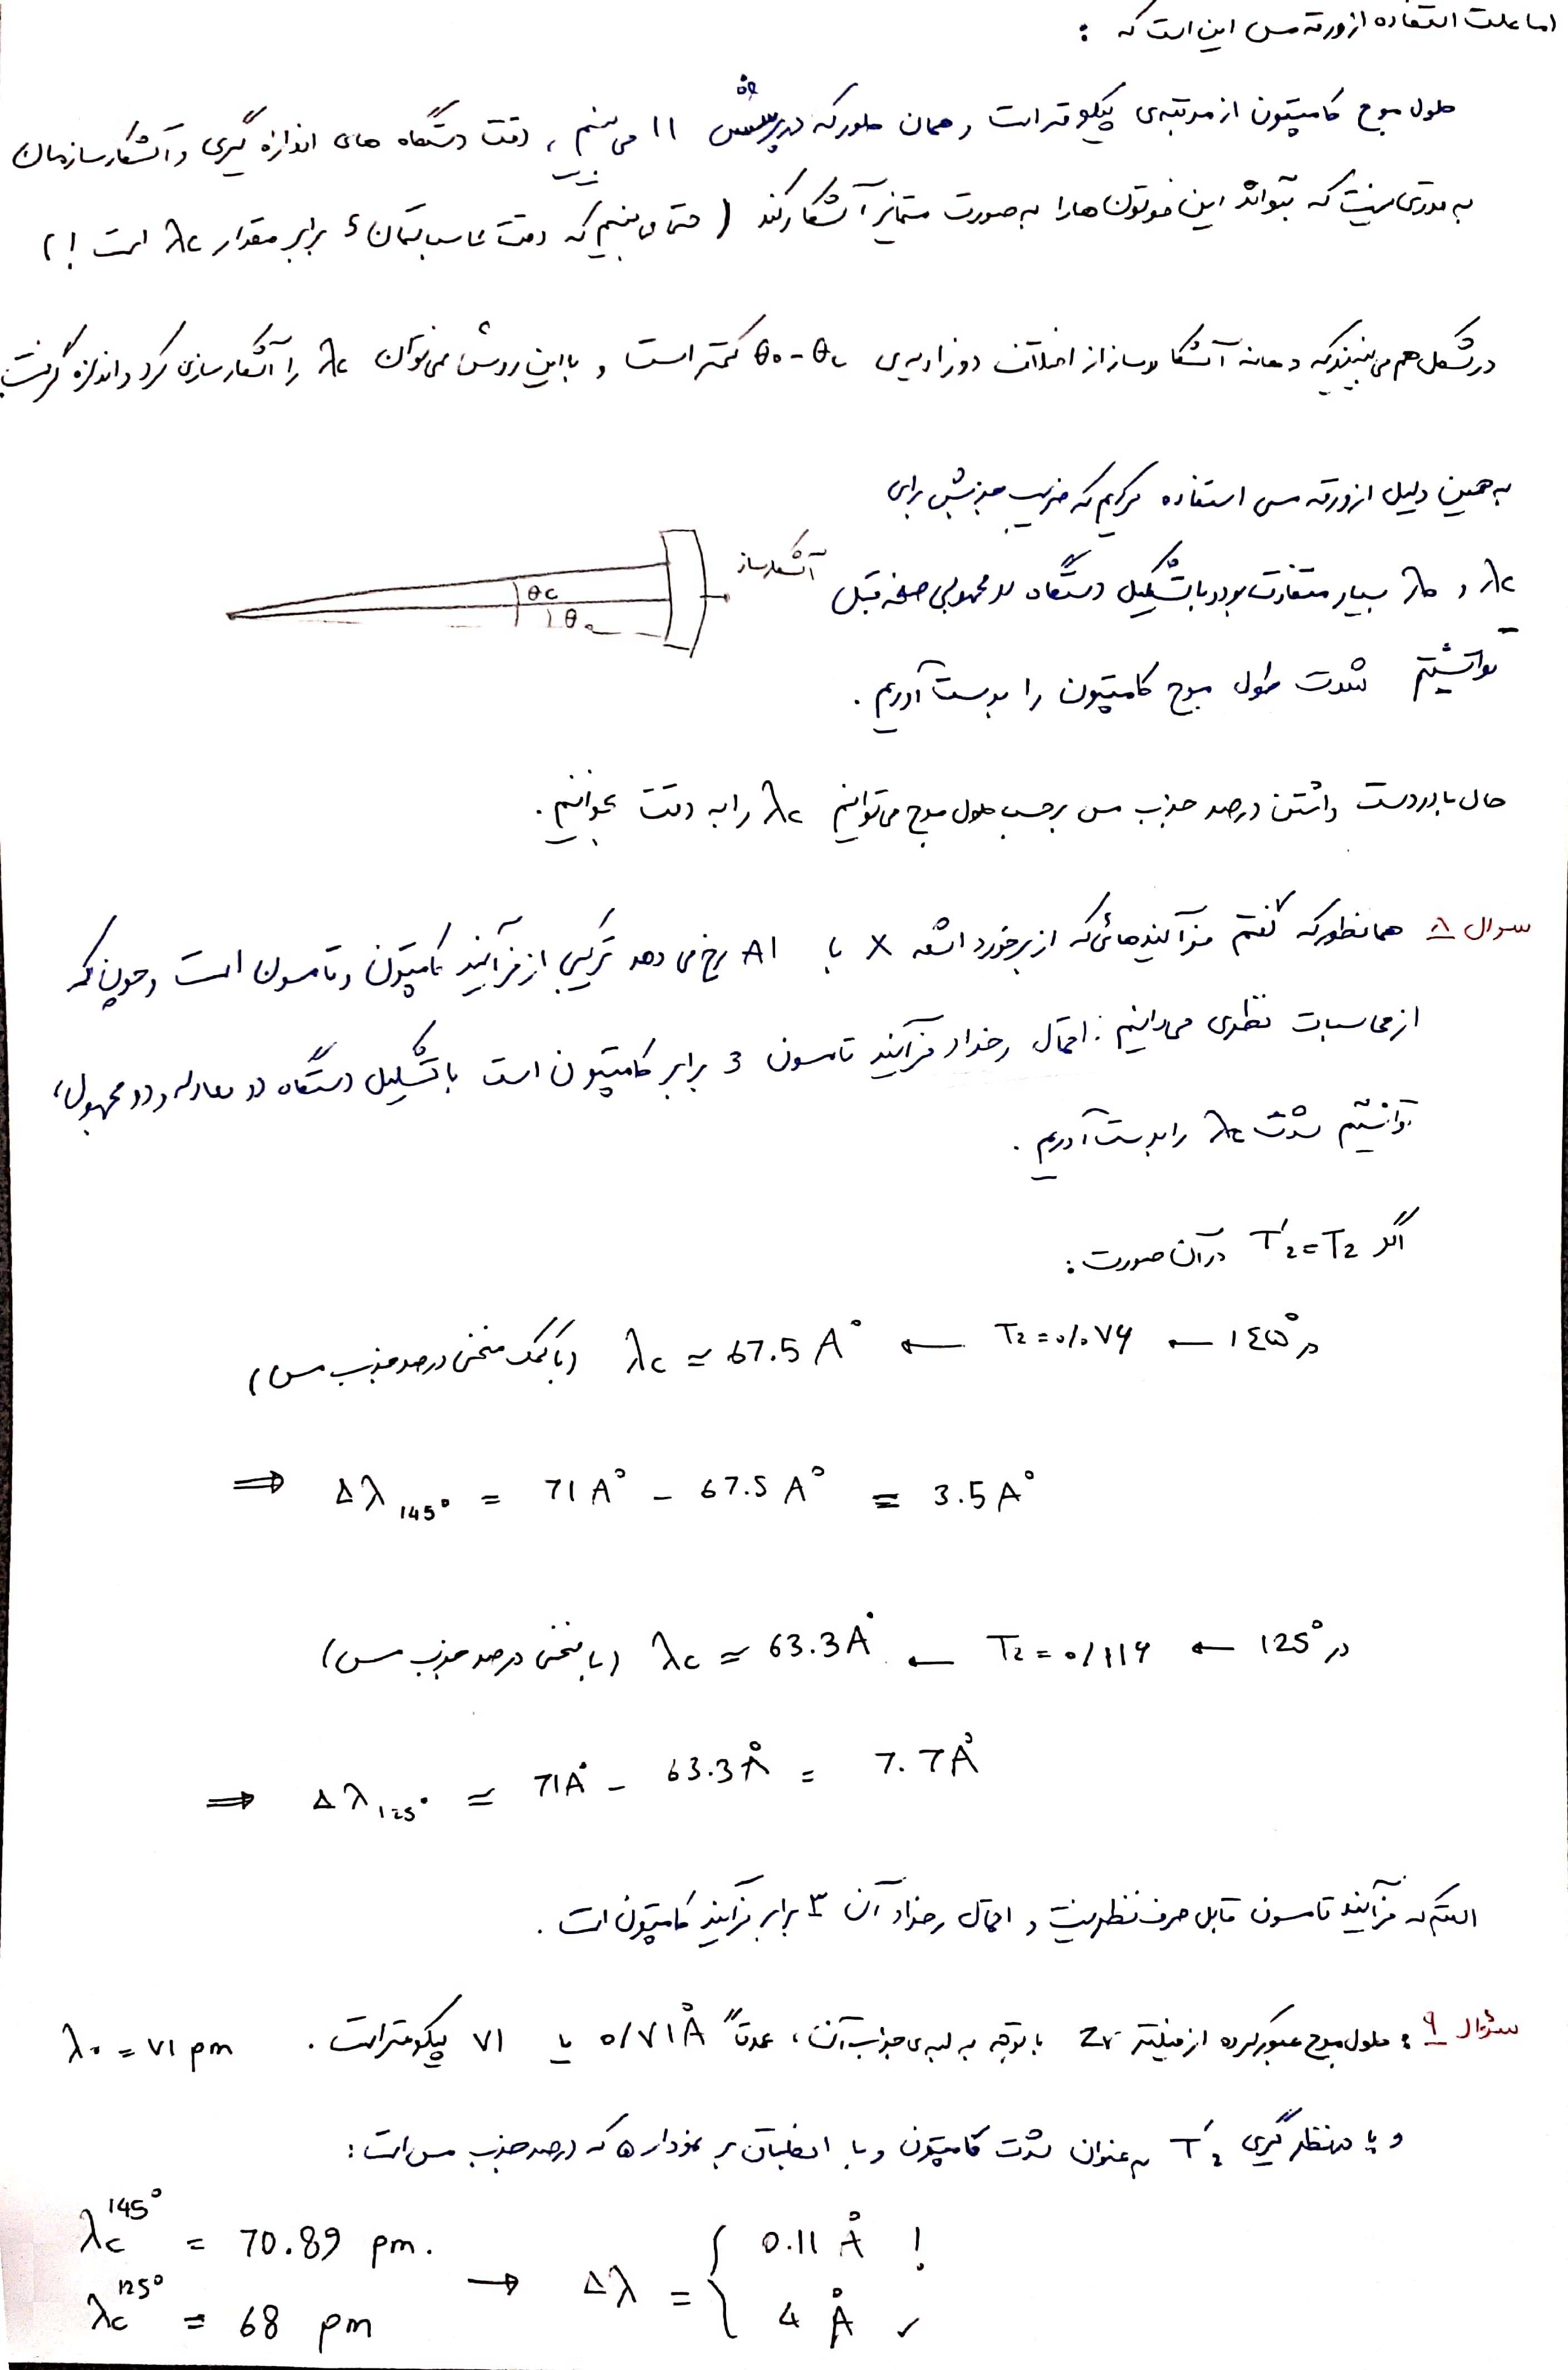 اما علت استفاده از ورقه مس این است که :
طول موج کامپتون از مرتبه‌ی پیکومتر است و همان طور که در پرسش ۱۱ می‌بینیم ، دقت دستگاه های اندازه گیری و آشکارسازمان
به قدری نیست که بتواند این فوتون ها را به صورت متمایز آشکار کند ( حتی می‌بینیم که دقت محاسباتمان ۶ برابر مقدار λc است ! )
در شکل هم می‌بینید که دهانه آشکارساز از اختلاف دو زاویه‌ی θ₀ - θc کمتر است و با این روش نمی‌توان λc را آشکارسازی کرد و اندازه گرفت
به همین دلیل از ورقه مس استفاده کردیم که ضریب جذبش برای
λc و λ₀ بسیار متفاوت بود و با تشکیل دستگاه دو مجهولی صفحه قبل
توانستیم شدت طول موج کامپتون را بدست آوریم .
آشکارساز
θc
θ₀
حال با در دست داشتن درصد جذب مس برحسب طول موج می‌توانیم λc را به دقت بخوانیم .
سوال ۸ همانطور که گفتم فرآیندهائی که از برخورد اشعه X با Al رخ می دهد ترکیبی از فرآیند کامپتون و تامسون است و چون که
از محاسبات نظری می‌دانیم : احتمال رخداد فرآیند تامسون 3 برابر کامپتون است با تشکیل دستگاه دو معادله و دو مجهول ،
توانستیم شدت λc را بدست آوریم .
اگر T'₂ = T₂ در آن صورت :
در ۱۴۵° ← T₂ = ۰/۰۷۶ ← λc ≈ 67.5 A° (با کمک منحنی درصد جذب مس)
⇒ Δλ 145° = 71 A° - 67.5 A° = 3.5 A°
در 125° ← T₂ = ۰/۱۱۶ ← λc ≈ 63.3 A° (با منحنی درصد جذب مس)
⇒ Δλ 125° = 71A° - 63.3 A° = 7.7 A°
فرآیند تامسون قابل صرف نظر نیست و احتمال رخداد آن ۳ برابر فرآیند کامپتون است .
سؤال ۹ : طول موج عبور کرده از فیلتر Zr با توجه به لبه ی جذب آن ، عمدتاً ۰/۷۱ A° یا ۷۱ پیکومتر است . λ₀ = ۷۱ pm
و با درنظر گیری T'₂ به عنوان شدت کامپتون و با انطباق بر نمودار ۵ که درصد جذب مس است :
λc 145° = 70.89 pm.
λc 125° = 68 pm
→ Δλ = { 0.11 A° !
4 A° ✓